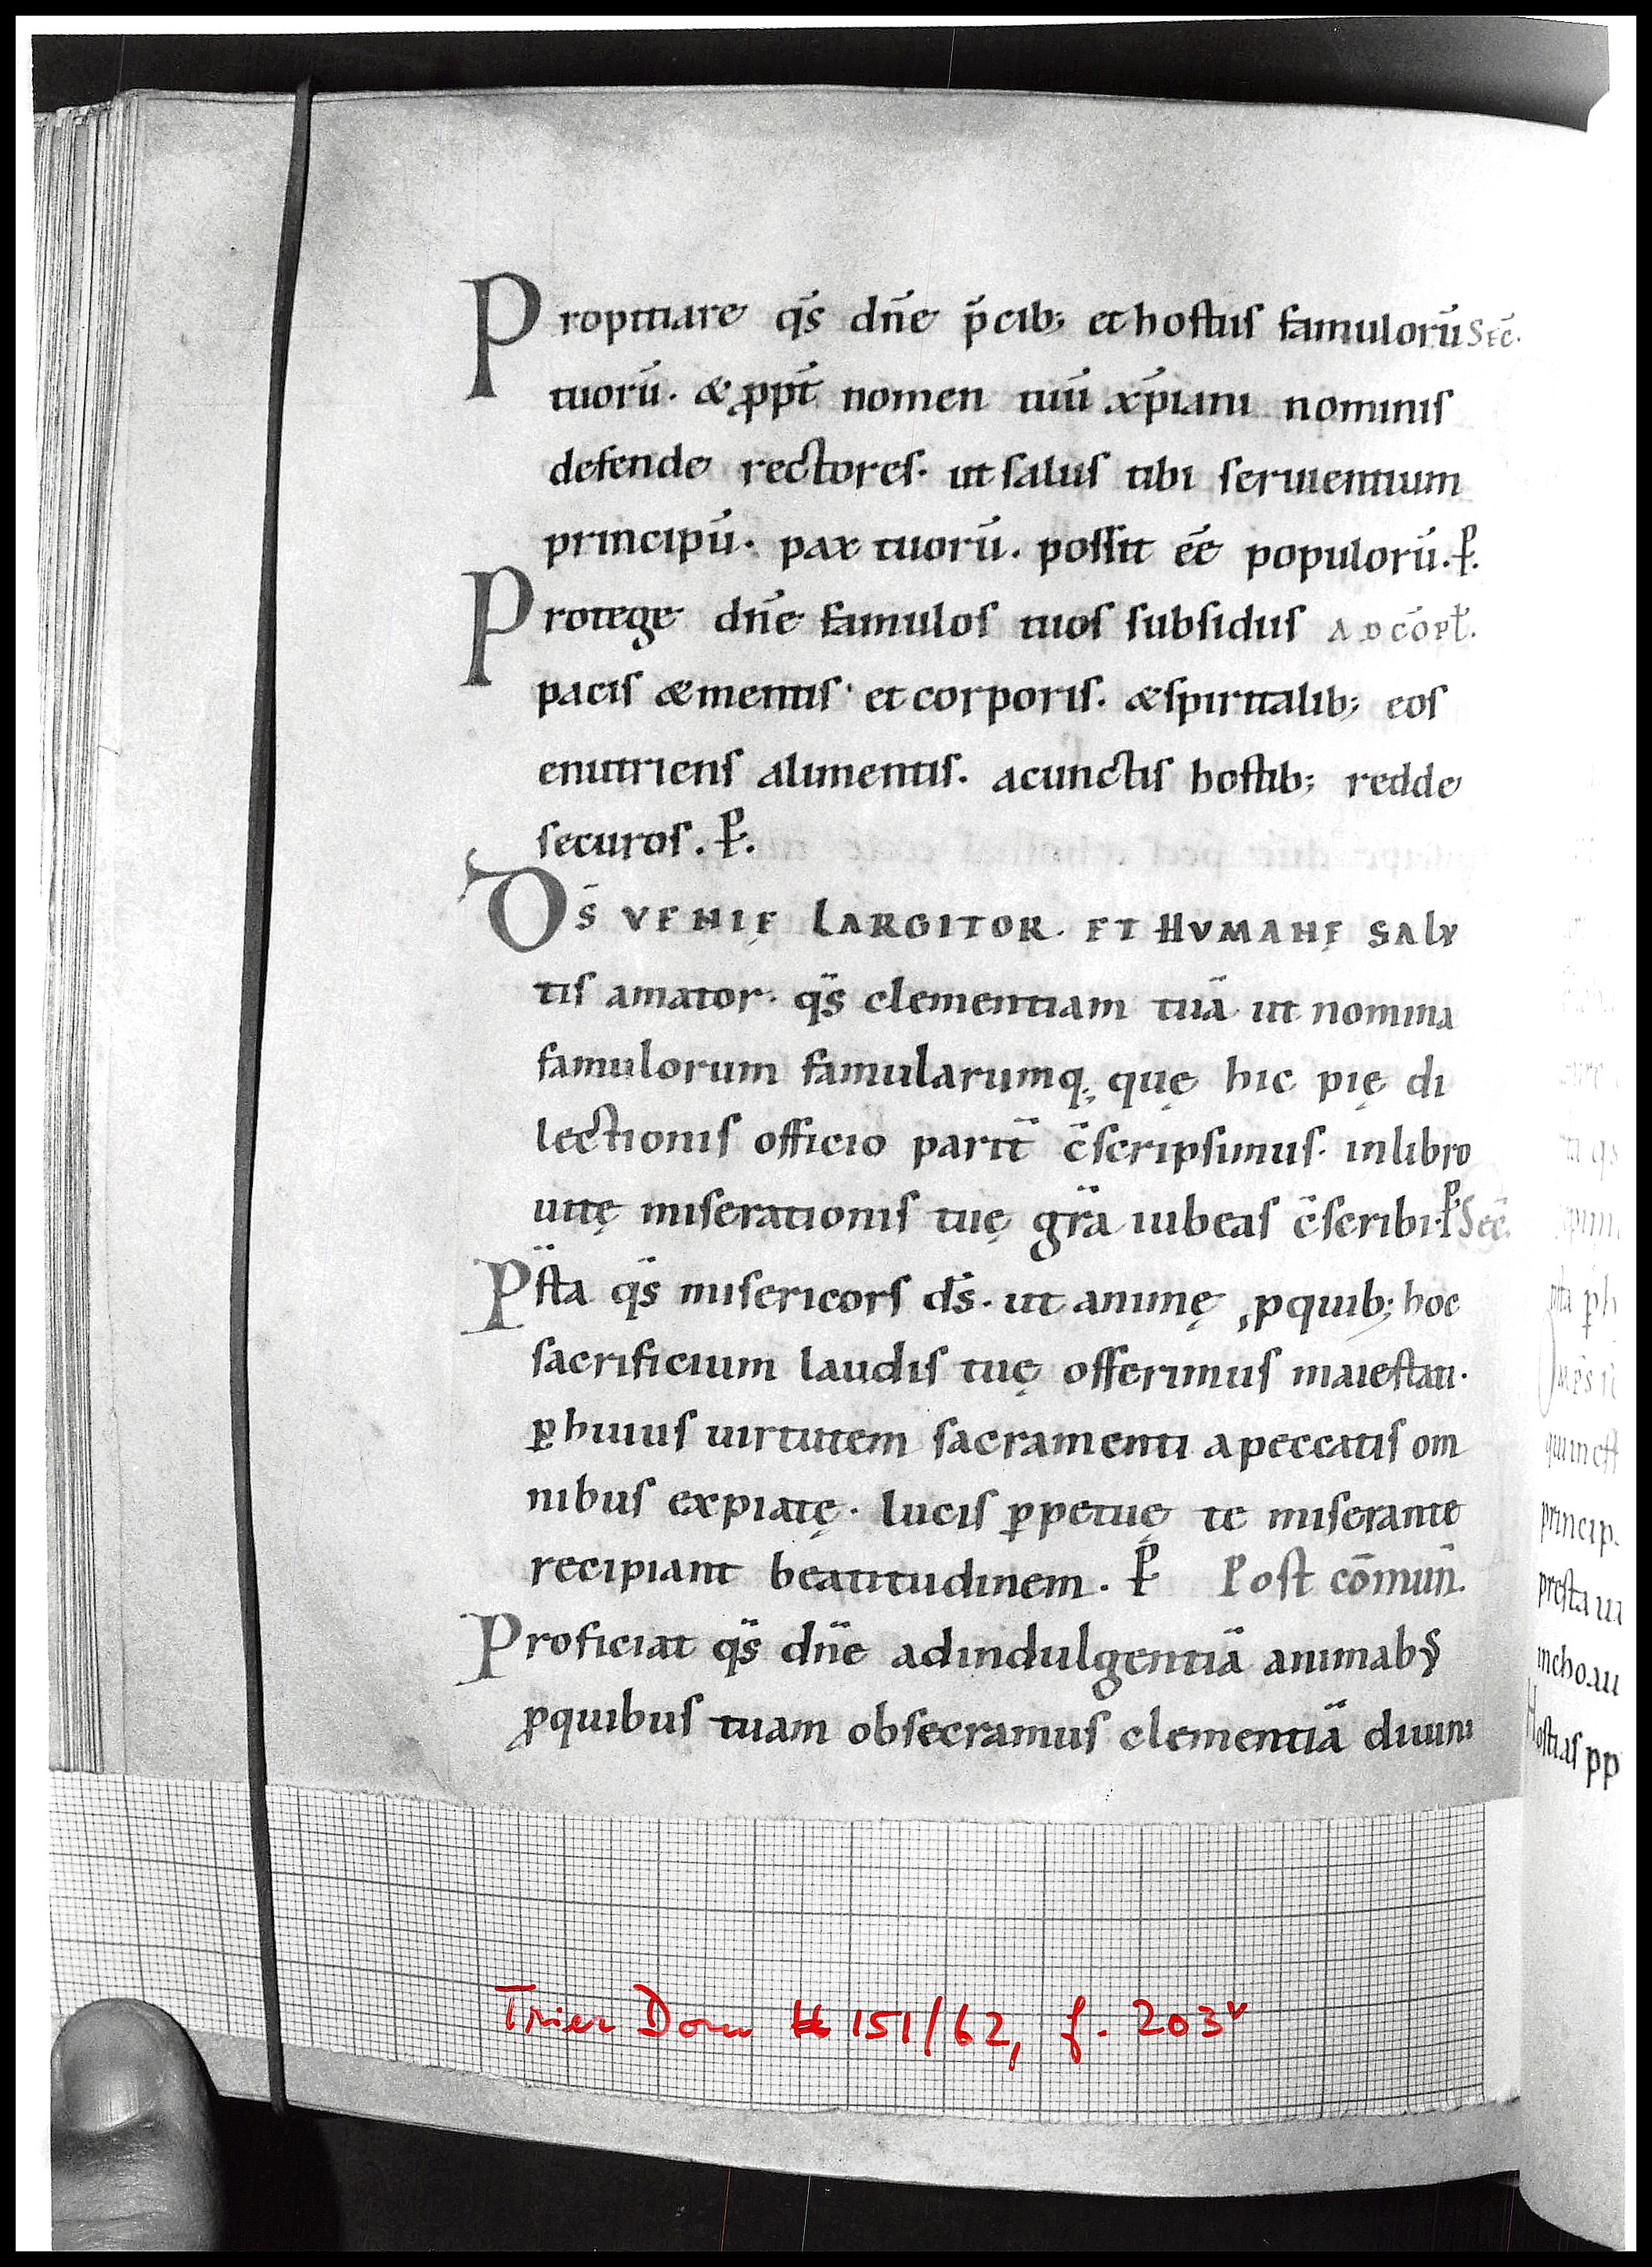 Propitiare qs̄ dn̄e p̄cib; et hostiis famulorū Sēc.
tuorū. & ꝓpt̄ nomen tuū xp̄iani nominis
defende rectores. ut salus tibi seruientium
principū. pax tuorū. possit eē populorū. P̱.
Protege dn̄e famulos tuos subsidiis AD CŌPL̄.
pacis & mentis et corporis. & spiritalib; eos
enutriens alimentis. a cunctis hostib; redde
securos. P̱.
DS̄ VENIĘ LARGITOR. ET HVMANĘ SALV
tis amator. qs̄ clementiam tuā ut nomina
famulorum famularumq; quę hic pię di
lectionis officio parit̄ c̄scripsimus. in libro
uitę miserationis tuę grā iubeas c̄scribi. P̱ Sec̄.
P̄sta qs̄ misericors ds̄. ut animę, ꝓ quib; hoc
sacrificium laudis tuę offerimus maiestati.
ꝑ huius uirtutem sacramenti a peccatis om
nibus expiatę. lucis ꝑpetuę te miserante
recipiant beatitudinem. P̱ Post cōmun̄.
Proficiat qs̄ dn̄e ad indulgentiā animabꝰ
ꝓ quibus tuam obsecramus clementiā diuini
qui in eff
princip.
presta ui
inchoaui
Hostias pp
Trier Dom Hs 151/62, f. 203v